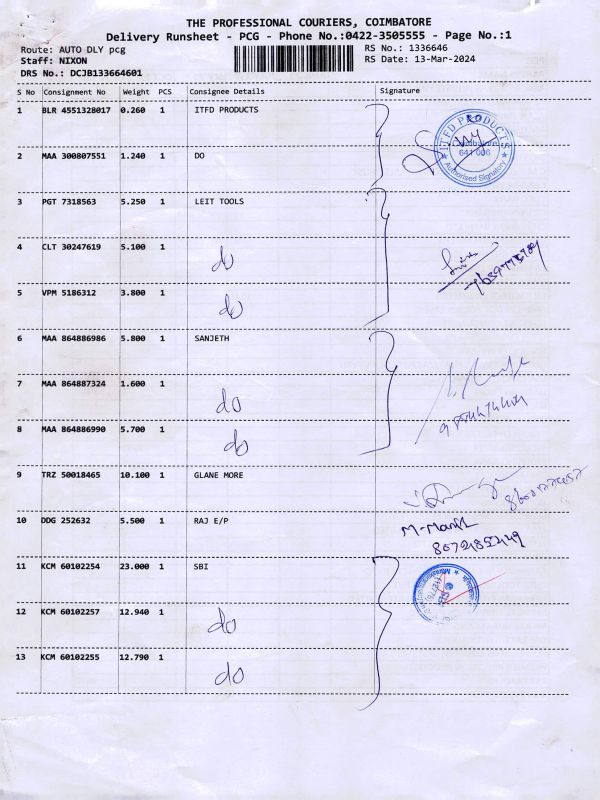 THE PROFESSIONAL COURIERS, COIMBATORE
Delivery Runsheet - PCG - Phone No.:0422-3505555 - Page No.:1
Route: AUTO DLY pcg RS No.: 1336646
Staff: NIXON RS Date: 13-Mar-2024
DRS No.: DCJB133664601
S No Consignment No Weight PCS Consignee Details Signature
1 BLR 4551328017 0.260 1 ITFD PRODUCTS
ITFD PRODUCTS
641 006
Authorised Signatory
2 MAA 300807551 1.240 1 DO
3 PGT 7318563 5.250 1 LEIT TOOLS
4 CLT 30247619 5.100 1 do
5 VPM 5186312 3.800 1 do
6 MAA 864886986 5.800 1 SANJETH
7 MAA 864887324 1.600 1 do
8 MAA 864886990 5.700 1 do
9 TRZ 50018465 10.100 1 GLANE MORE
10 DDG 252632 5.500 1 RAJ E/P M-Manik
11 KCM 60102254 23.000 1 SBI
12 KCM 60102257 12.940 1 do
13 KCM 60102255 12.790 1 do